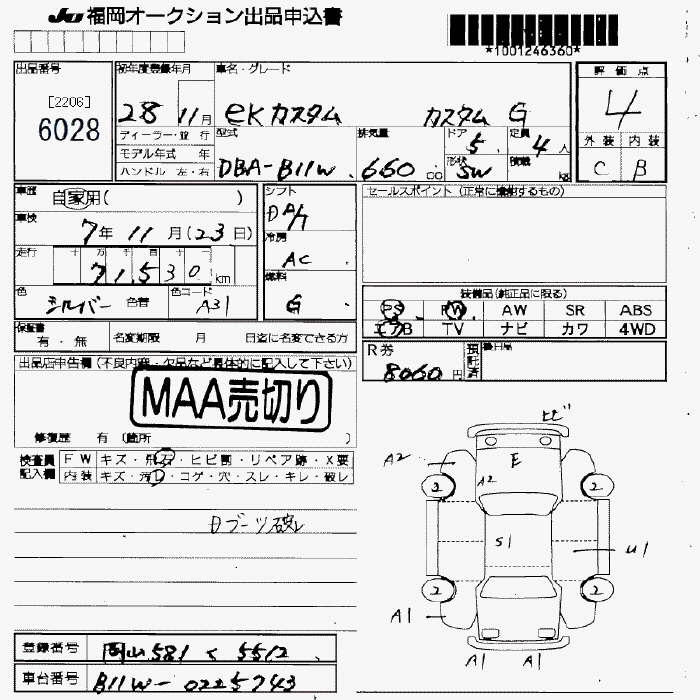 JU 福岡オークション出品申込書
*1001246360*
出品番号 初年度登録年月 車名・グレード 評価点
[2206]
6028
28 11月 eKカスタム カスタム G 4
ディーラー・並行 型式 排気量 ドア 定員 外装 内装
モデル年式 年 5 4人
ハンドル 左・右 DBA-B11W 660cc 形状 SW 積載 kg C B
車歴 自家用( ) シフト セールスポイント (正常に機能するもの)
車検 DA/T
7年11月(23日) 冷房
走行 十万千百十 AC
71,530km 燃料 装備品(純正品に限る)
色 シルバー 色替 色コード A31 G PS PW AW SR ABS
エアB TV ナビ カワ 4WD
保証書 有・無 名変期限 月 日迄に名変できる方
R券 8060円 預託済 後日品
出品店申告欄 (不良内容・欠品など具体的に記入して下さい)
MAA売切り
修復歴 有 (箇所 )
検査員記入欄 FW キズ・飛石・ヒビ割・リペア跡・X要
内装 キズ・汚レ・コゲ・穴・スレ・キレ・破レ
Dブーツ破レ
ヒビ
A2 E
A2
2 2
S1 U1
2 2
A1 A1
A1 A1
登録番号 岡山 581 く 5512
車台番号 B11W-0225743